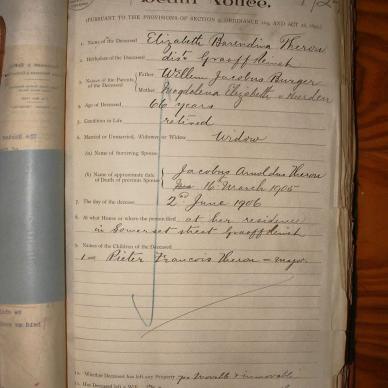 Death Notice.
(PURSUANT TO THE PROVISIONS OF SECTION 9, ORDINANCE 104, AND ACT
1. Name of the Deceased Elizabeth Barendina Theron
2. Birthplace of the Deceased dist Graaff Reinet
3. Names of the Parents of the Deceased Father Willem Jacobus Burger
Mother Magdalena Elizabeth v Heerden
4. Age of Deceased 66 years
5. Condition in Life retired
6. Married or Unmarried, Widower or Widow Widow
(a) Name of Surviving Spouse
(b) Name of approximate date of Death of previous Spouse Jacobus Arnoldus Theron
16 March 1905
7. The day of the decease 2nd June 1906
8. At what House or where the person died at her residence
in Somerset street Graaff Reinet
9. Names of the Children of the Deceased
1 Pieter Francois Theron – major
10. Whether Deceased has left any Property yes movable & immovable
11. Has Deceased left a Will